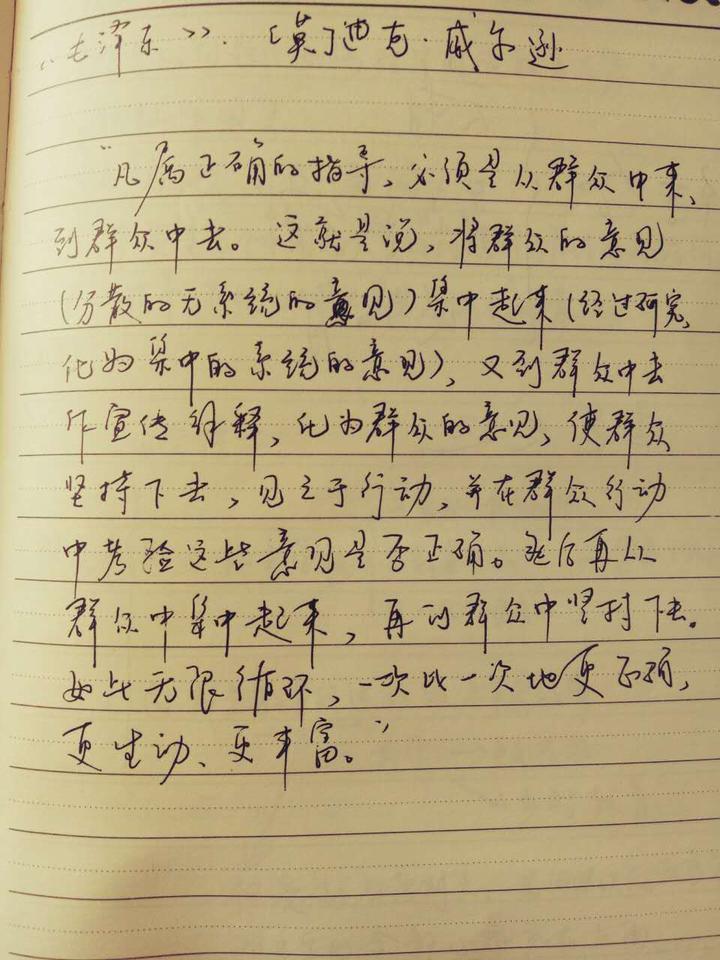 《毛泽东》. [英]迪克·威尔逊
“凡属正确的指导、必须是从群众中来、
到群众中去。这就是说，将群众的意见
(分散的无系统的意见)集中起来(经过研究，
化为集中的系统的意见)，又到群众中去
作宣传解释，化为群众的意见，使群众
坚持下去，见之于行动，并在群众行动
中考验这些意见是否正确。然后再从
群众中集中起来，再到群众中坚持下去。
如此无限循环，一次比一次地更正确，
更生动、更丰富。”